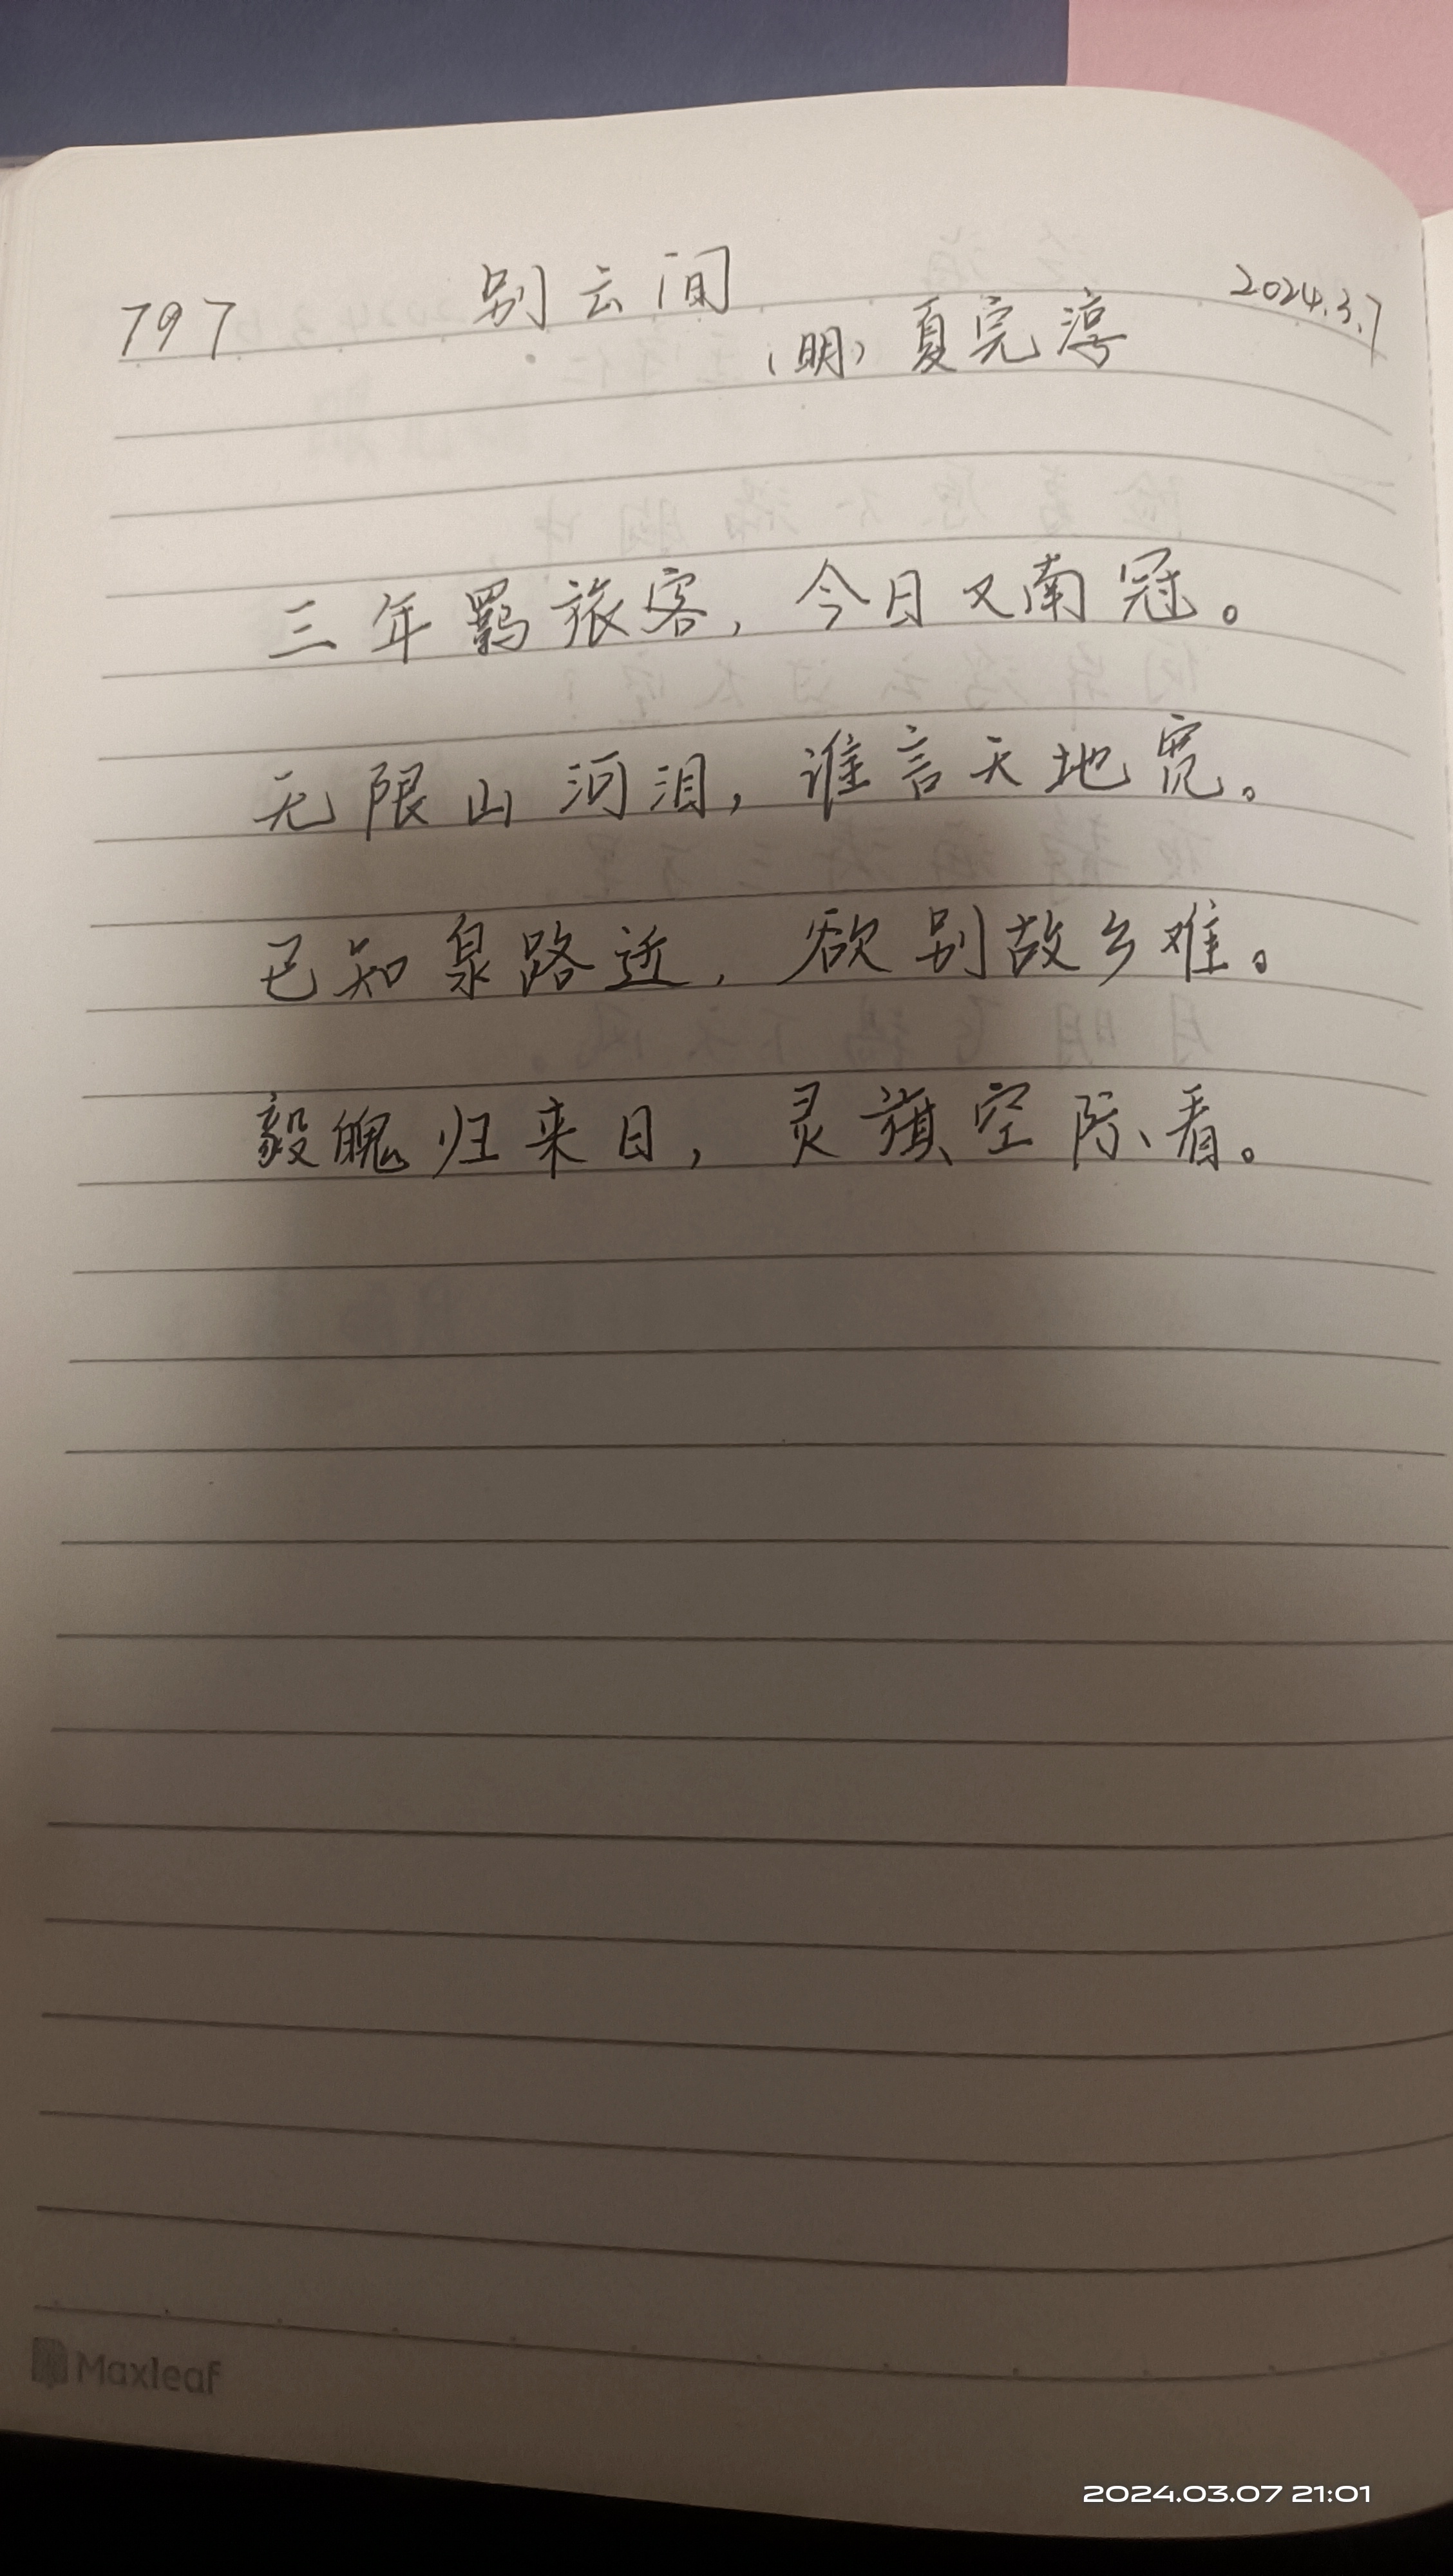 797 别云间 2024.3.7
(明) 夏完淳
三年羁旅客，今日又南冠。
无限山河泪，谁言天地宽。
已知泉路近，欲别故乡难。
毅魄归来日，灵旗空际看。
Maxleaf
2024.03.07 21:01